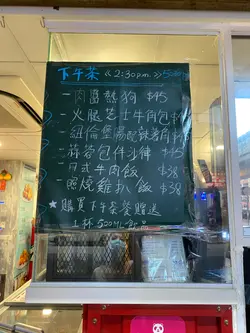 下午茶 《2:30pm.》
－肉醬熱狗 $45
－火腿芝士牛角包
－紐倫堡腸配
－蒜蓉包伴沙律 $45
－日式牛肉飯 $38
－照燒雞扒飯 $38
★購買下午茶餐贈送
1杯500ML